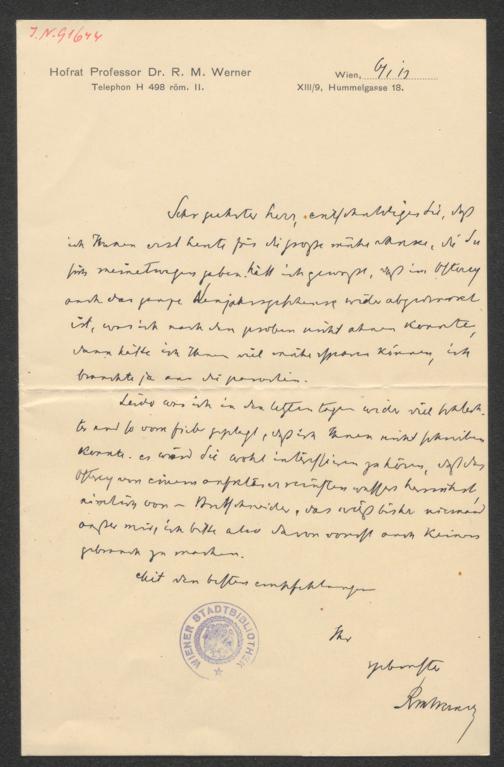 J.N. 91644
Hofrat Professor Dr. R. M. Werner
Telephon H 498 röm. II.
Wien,
XIII/9, Hummelgasse 18.
Sehr geehrter Herr, entschuldigen Sie, daß
ich Ihnen erst heute für die große mühe danke, die Sie
sich meinetwegen geben. hätt ich gewußt, daß im
auch das ganze Neujahrsgeschenk wider abgedruckt
ist, was ich nach den proben nicht ahnen konnte,
dann hätte ich Ihnen viel mühe ersparen können, ich
brauchte ja nur die parodien.
Leider war ich in den letzten tagen wider viel schlech-
ter und so vom fieber geplagt, daß ich Ihnen nicht schreiben
konnte. es wird Sie wohl interessieren zu hören, daß das
von einem reinsten wassers herrührt,
nämlich von – Bretschneider, das weiß bisher niemand
außer mir, ich bitte also davon vorerst auch keinen
gebrauch zu machen.
Mit den besten empfehlungen
Ihr
RMWerner
WIENER STADTBIBLIOTHEK